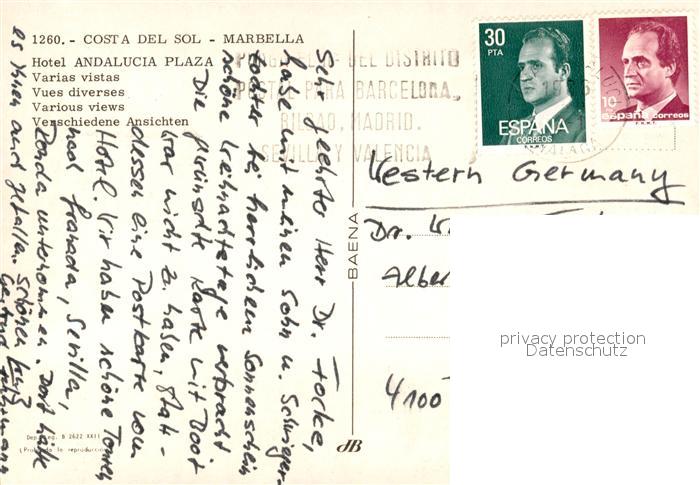 1260. - COSTA DEL SOL - MARBELLA
Hotel ANDALUCIA PLAZA
Varias vistas
Vues diverses
Various views
Verschiedene Ansichten
DEL DISTRITO
POSTAL PARA BARCELONA,
BILBAO, MADRID.
SEVILLA Y VALENCIA
30
PTA
ESPAÑA
CORREOS
10
España correos
Sehr geehrter Herr Dr. Focke,
habe mit meinem Sohn u. Schwieger-
tochter bei herrlichem Sonnenschein
schöne Weihnachtstage verbracht
Die gewünschte Karte mit Boot
war nicht zu haben, statt-
dessen eine Postkarte vom
Hotel. Wir haben schöne Touren
nach Granada, Sevilla,
Ronda unternommen. Dort hätte
es Ihnen auch gefallen. Schönen Gruß
Western Germany
Dr.
Alber
4100
BAENA
Dep. Leg. B 2622 XXII
(Prohibida la reproducción)
JB
privacy protection
Datenschutz